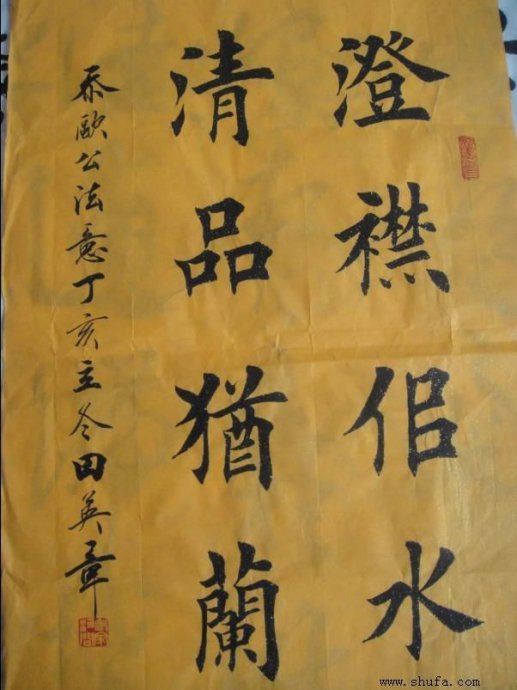 澄襟佀水
清品猶蘭
叅歐公法意丁亥立冬田英章
www.shufa.com